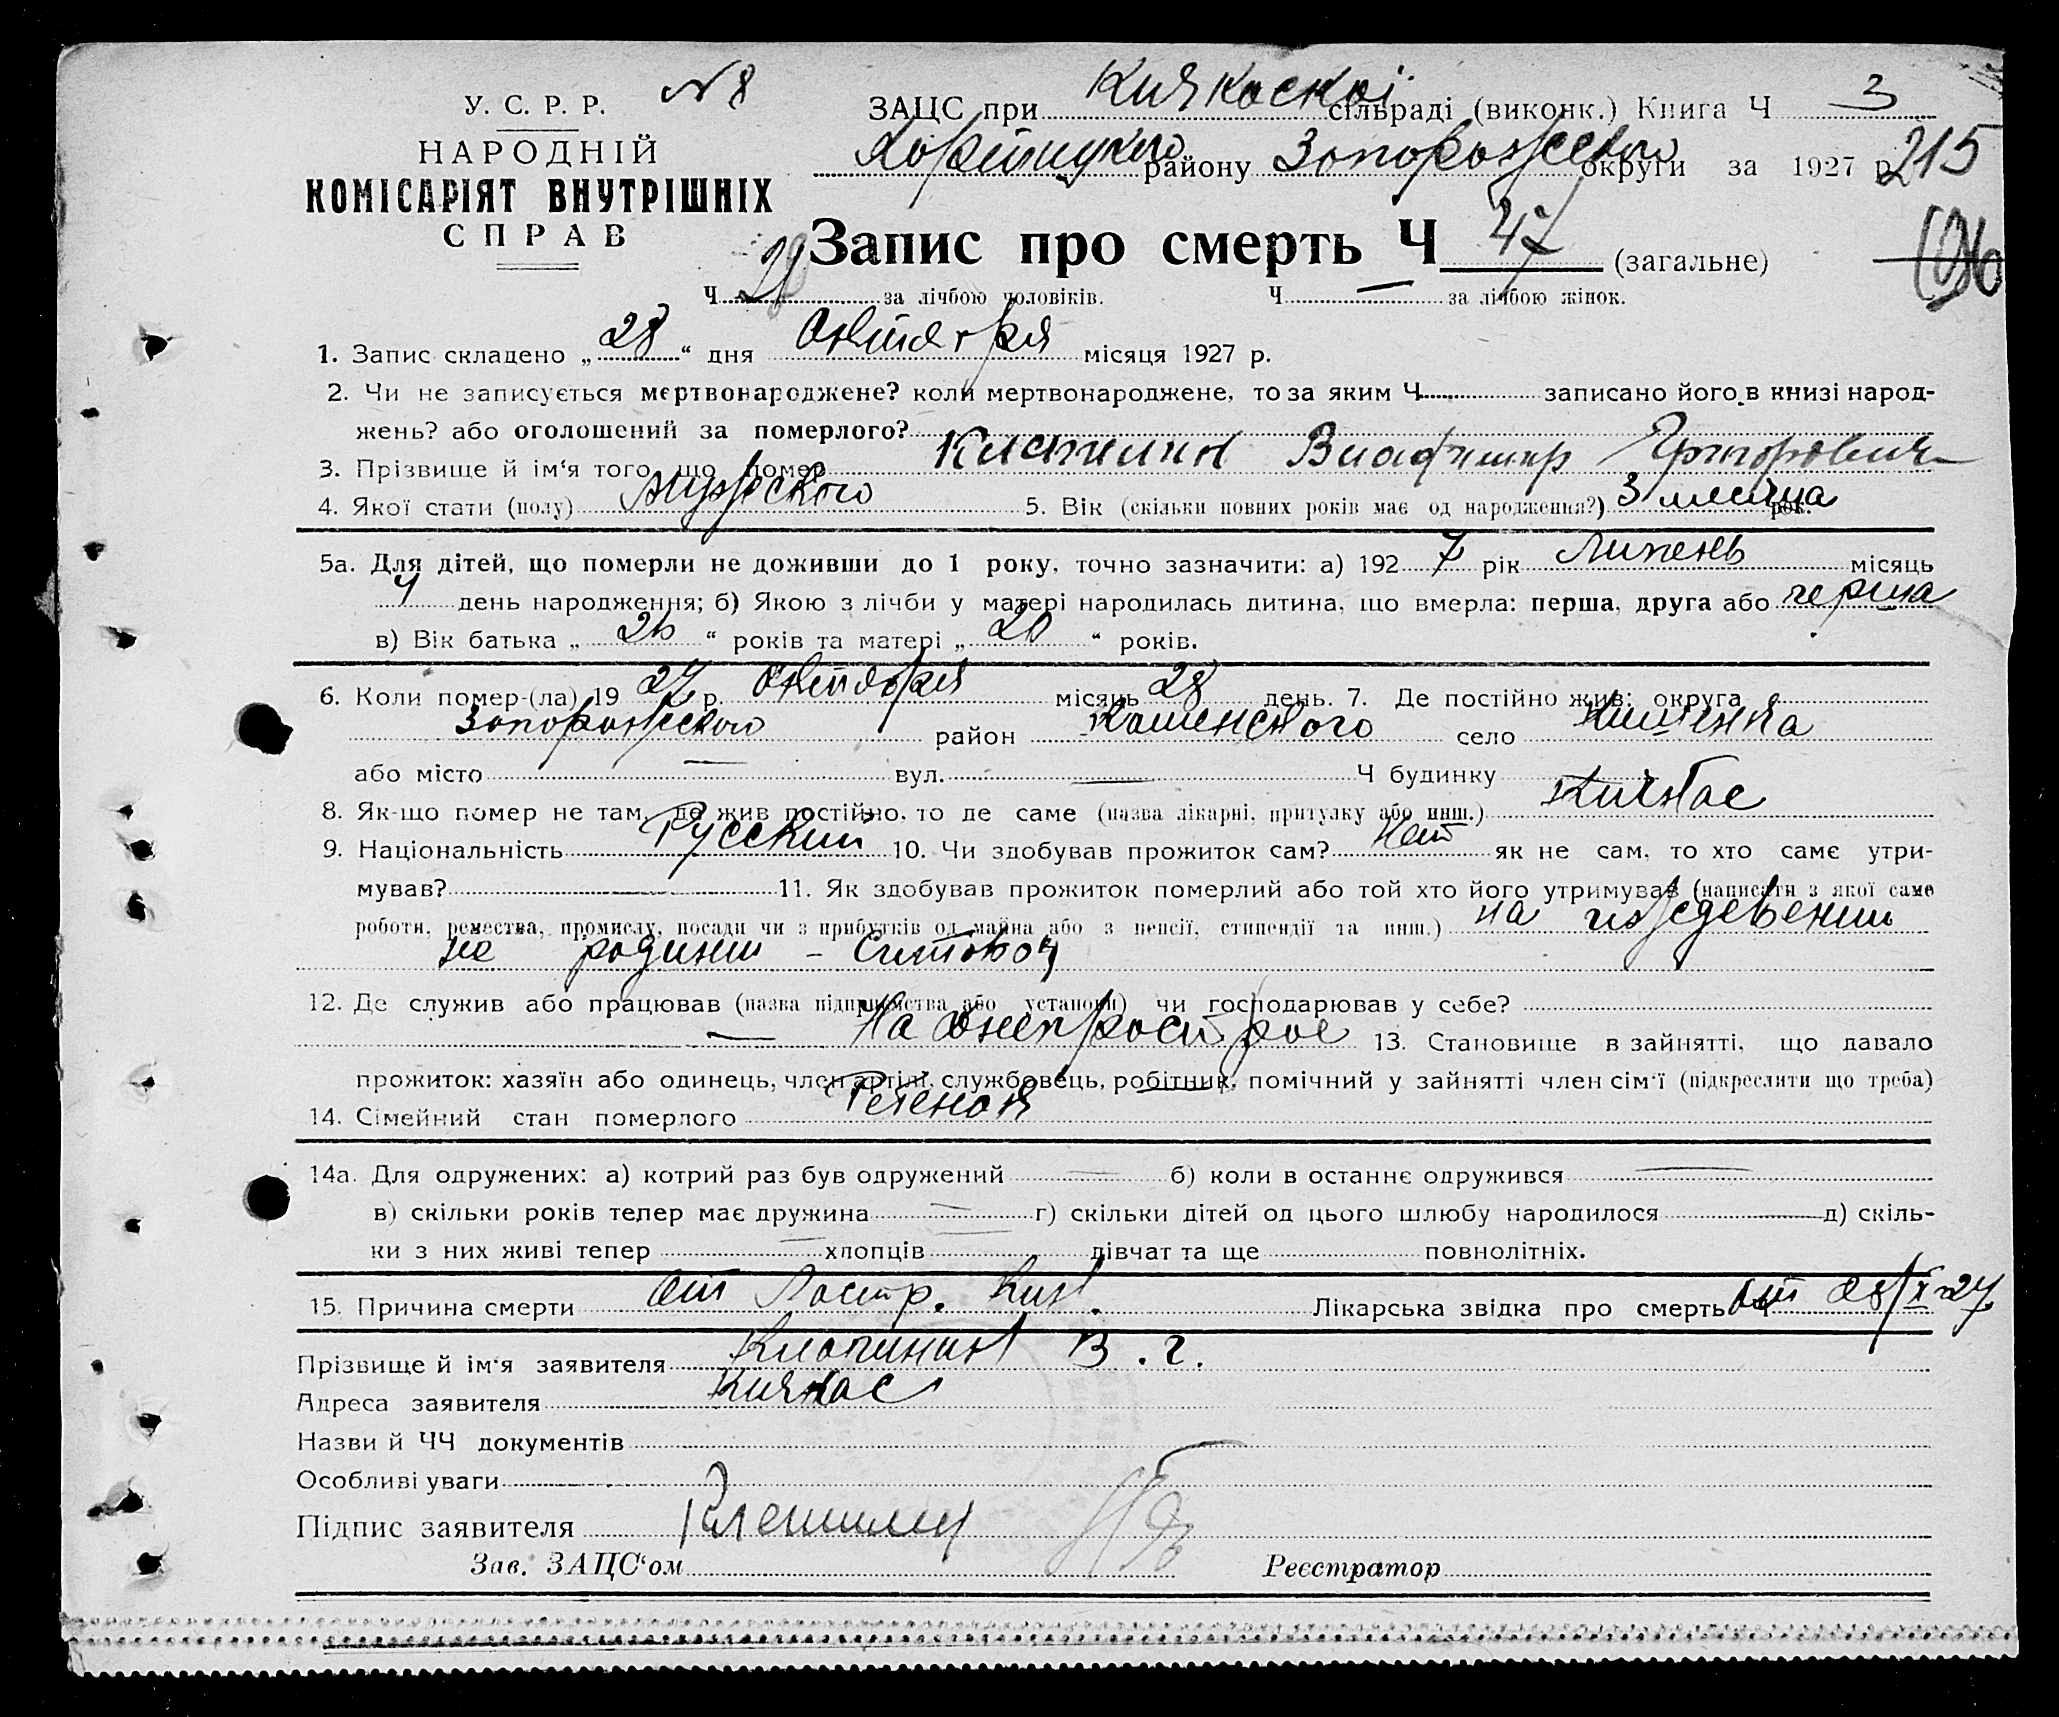 У. С. Р. Р.
№ 8
НАРОДНІЙ
КОМІСАРІЯТ ВНУТРІШНІХ
СПРАВ
ЗАЦС при Кичкаської сільраді (виконк.) Книга Ч 3
Хортицького району Запорожського округи за 1927 р. 215
Запис про смерть Ч 47 (загальне)
Ч 28 за лічбою чоловіків. Ч — за лічбою жінок.
1. Запис складено „ 28 “ дня Октября місяця 1927 р.
2. Чи не записується мертвонароджене? коли мертвонароджене, то за яким Ч записано його в книзі народ-
жень? або оголошений за померлого?
3. Прізвище й ім‘я того, що помер Владимир Григорович
4. Якої стати (полу) мужского 5. Вік (скільки повних років має од народження?) 3 месяца рок.
5а. Для дітей, що померли не доживши до 1 року, точно зазначити: а) 192 7 рік Липень місяць
4 день народження; б) Якою з лічби у матері народилась дитина, що вмерла: перша, друга або перша
в) Вік батька „ 26 “ років та матері „ 20 “ років.
6. Коли помер-(ла) 19 27 р. Октября місяць 28 день. 7. Де постійно жив: округа
Запорожского район Каменского село
або місто — вул. — Ч будинку
8. Як-що помер не там, де жив постійно, то де саме (назва лікарні, притулку або инш.) Кичкас
9. Національність Русский 10. Чи здобував прожиток сам? Нет як не сам, то хто саме утри-
мував? — 11. Як здобував прожиток померлий або той хто його утримував (написати з якої саме
роботи, ремества, промислу, посади чи з прибутків од майна або з пенсії, стипендії та инш.) на иждевении
12. Де служив або працював (назва підприємства або установи) чи господарював у себе?
— На Днепрострое 13. Становище в зайнятті, що давало
прожиток: хазяїн або одинець, член артілі, службовець, робітник, помічний у зайнятті член сім‘ї (підкреслити що треба)
14. Сімейний стан померлого Ребенок
14а. Для одружених: а) котрий раз був одружений — б) коли в останнє одружився —
в) скільки років тепер має дружина — г) скільки дітей од цього шлюбу народилося — д) скіль-
ки з них живі тепер — хлопців — дівчат та ще повнолітніх.
15. Причина смерти От Лікарська звідка про смерть Ч от 28/X-27
Прізвище й ім‘я заявителя В. Г.
Адреса заявителя Кичкас
Назви й ЧЧ документів
Особливі уваги
Підпис заявителя
Зав. ЗАЦС‘ом Реєстратор